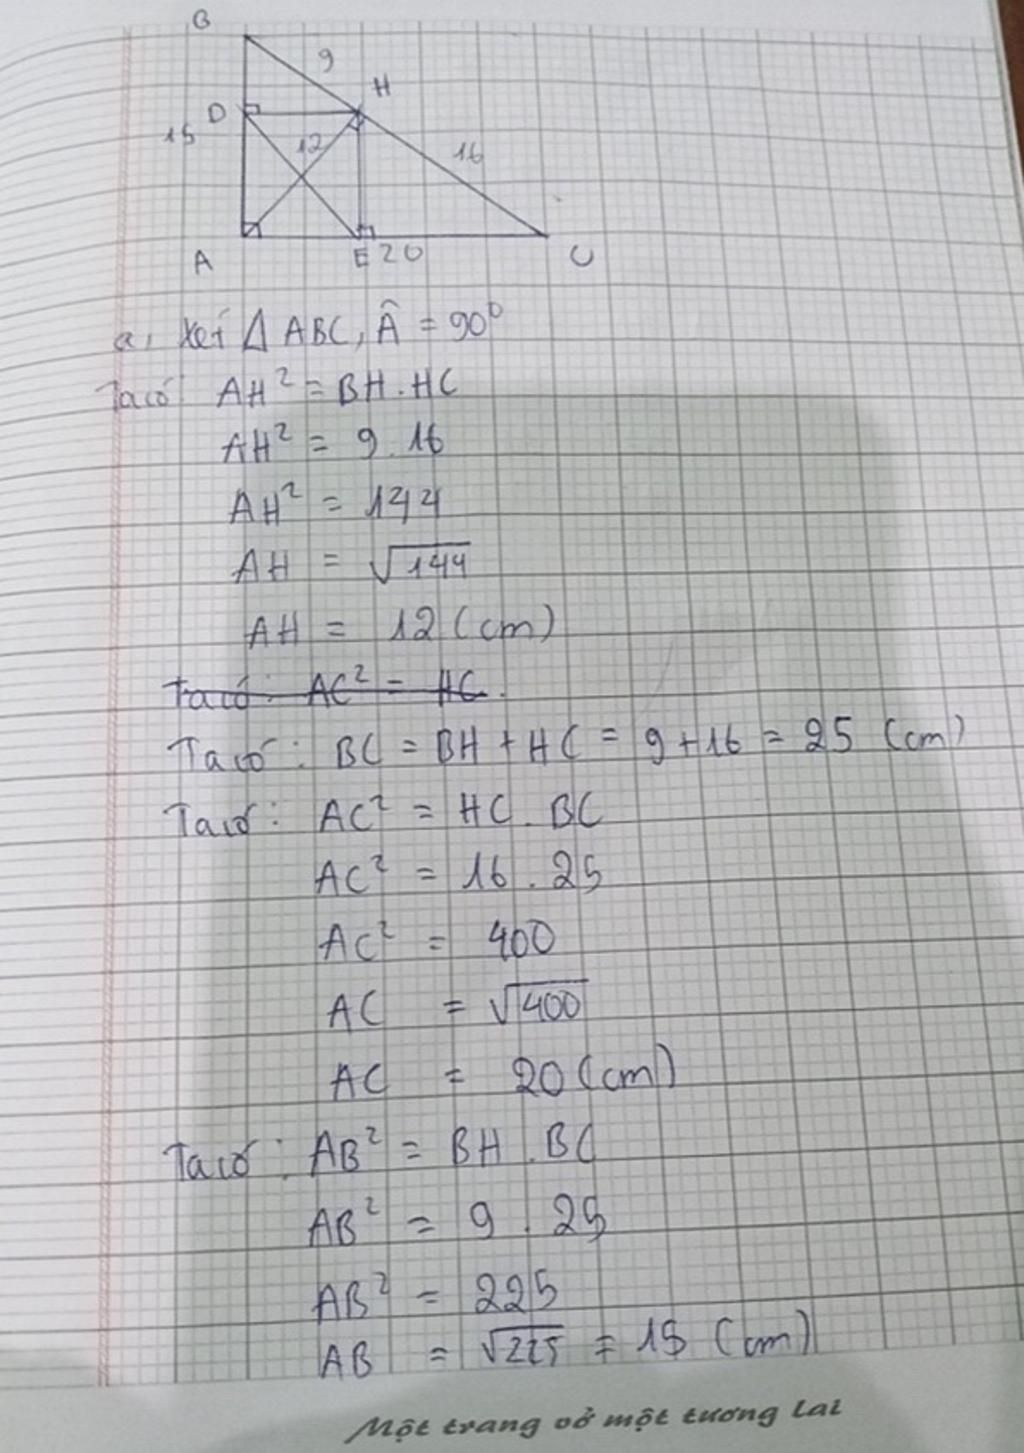 B
9
H
D
15
12
16
A
E 20
C
a, Xét Δ ABC, Â = 90⁰
Ta có: AH² = BH . HC
AH² = 9 . 16
AH² = 144
AH = √144
AH = 12 (cm)
Ta có: AC² = HC.
Ta có: BC = BH + HC = 9 + 16 = 25 (cm)
Ta có: AC² = HC . BC
AC² = 16 . 25
AC² = 400
AC = √400
AC = 20 (cm)
Ta có: AB² = BH . BC
AB² = 9 . 25
AB² = 225
AB = √225 = 15 (cm)
Một trang vở một tương lai